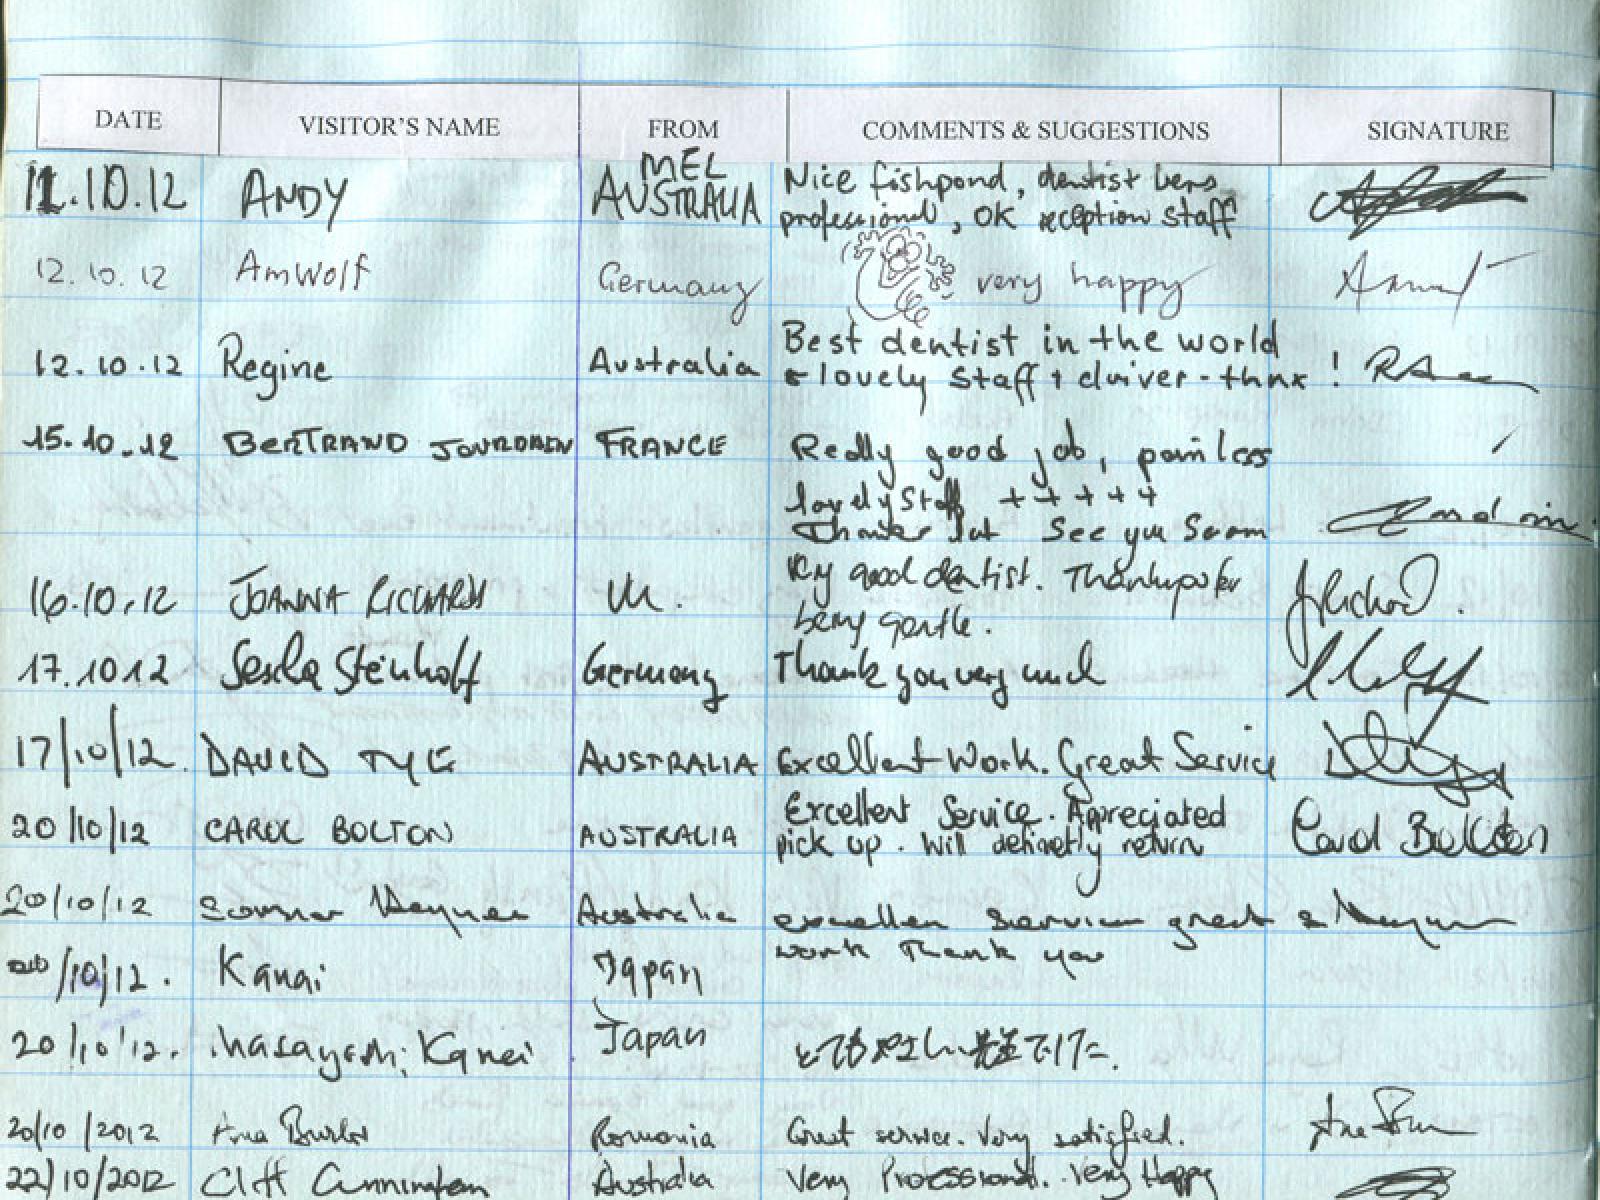 DATE VISITOR'S NAME FROM COMMENTS & SUGGESTIONS SIGNATURE
MEL
11.10.12 ANDY AUSTRALIA Nice fishpond, dentist very
professional, OK reception staff
12.10.12 AmWolf Germany very happy
Best dentist in the world
12.10.12 Regine Australia & lovely staff + driver - thnx !
15.10.12 BERTRAND JOURDREN FRANCE Really good job, painless
lovely staff +++++
See you soon
16.10.12 JOANNA RICHARDS UK. Very good dentist. Thankyou for J Richard.
being gentle.
17.10 12 Steinhoff Germany Thank you very much
17/10/12. DAVID TYE AUSTRALIA Excellent Work. Great Service
Excellent Service. Appreciated
20/10/12 CAROL BOLTON AUSTRALIA pick up. Will definetly return Carol Bolton
20/10/12 Australia excellen service great
work Thank you
/10/12. Kanai Japan
20/10/12. Masayoshi Kanai Japan とてもやさしい先生でした.
20/10/2012 Ana Romania Great service. Very satisfied.
22/10/2012 Cliff Cunningham Australia Very Professional. Very Happy